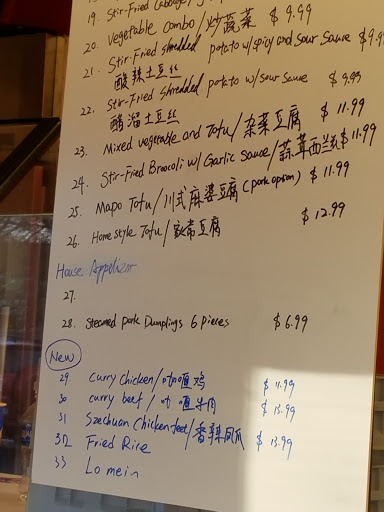 19. Stir-Fried Cabbage
20. Vegetable Combo / 炒蔬菜 $ 9.99
21. Stir-Fried shredded potato w/ spicy and sour Sauce $9.9
酸辣土豆丝
22. Stir-Fried shredded potato w/ sour Sauce $ 9.99
醋溜土豆丝
23. Mixed vegetable and Tofu / 杂菜豆腐 $ 11.99
24. Stir-Fried Broccoli w/ Garlic Sauce / 蒜茸西兰 $ 11.99
25. Mapo Tofu / 川式麻婆豆腐 (pork option) $ 11.99
26. Homestyle Tofu / 家常豆腐 $ 12.99
House Appetizer
27.
28. Steamed pork Dumplings 6 pieces $ 6.99
New
29. curry chicken / 咖喱鸡 $ 11.99
30 curry beef / 咖喱牛肉 $ 13.99
31 Szechuan Chicken feet / 香辣凤爪 $ 13.99
32 Fried Rice
33 Lo mein